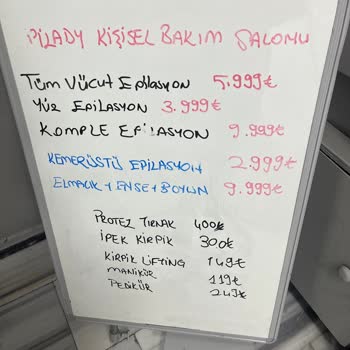 PİLADY KİŞİSEL BAKIM SALONU
Tüm Vücut Epilasyon 5.999₺
Yüz EPİLASYON 3.999₺
KOMPLE EPİLASYON 9.999₺
KEMERÜSTÜ EPİLASYON 2.999₺
ELMACIK + ENSE + BOYUN 9.999₺
PROTEZ TIRNAK 400₺
İPEK KİRPİK 300₺
KİRPİK LİFTİNG 149₺
MANİKÜR 119₺
PEDİKÜR 249₺